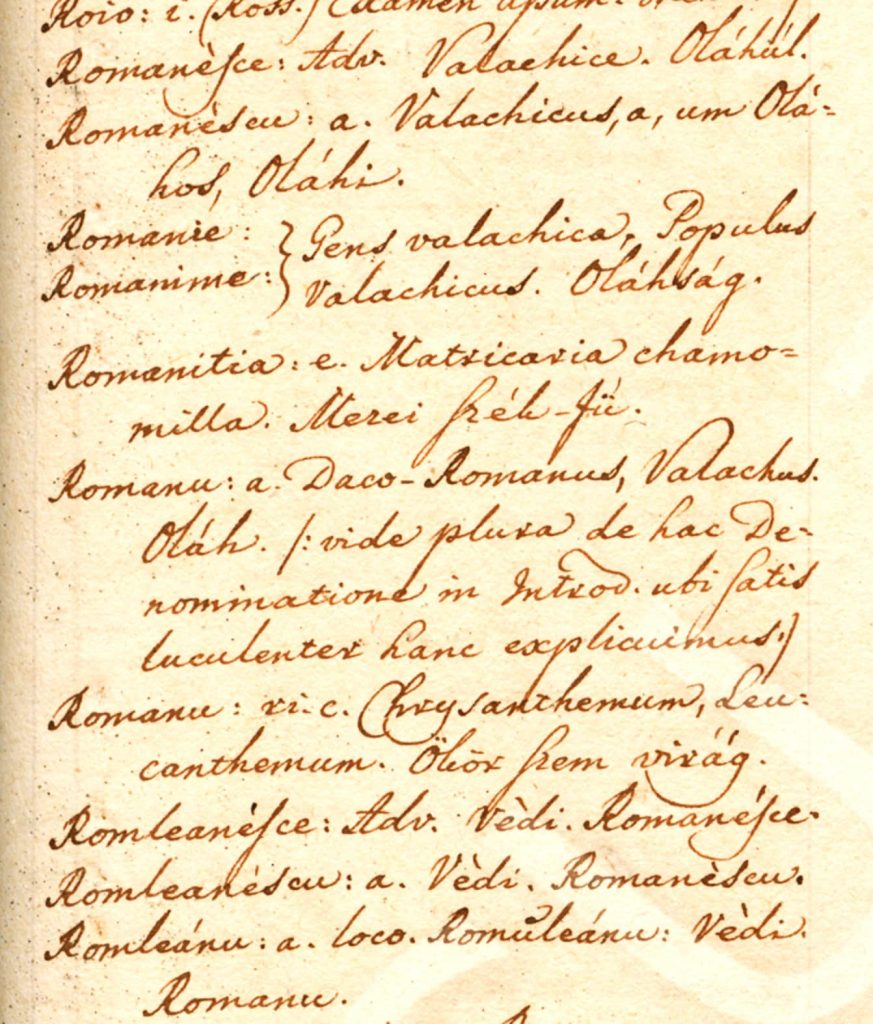 Roio: i. (Ross.) Examen apum.
Romanèſce: Adv. Valachice. Oláhúl.
Romanèscu: a. Valachicus, a, um Olá-
hos, Oláhi.
Romanie: } Gens valachica, Populus
Romanime: } Valachicus. Oláhság.
Romanitia: e. Matricaria chamo-
milla. Mezei ſzék-fű.
Romanu: a. Daco-Romanus, Valachus.
Oláh. /: vide plura de hac De-
nominatione in Introd. ubi ſatis
luculenter hanc explicuimus:/
Romanu: ri. c. Chrysanthemum, Leu-
canthemum. Ökör ſzem virág.
Romleanéſce: Adv. Vèdi. Romanéſce.
Romleanéscu: a. Vèdi. Romanèscu.
Romleánu: a. loco. Romŭleánu: Vèdi.
Romanu.